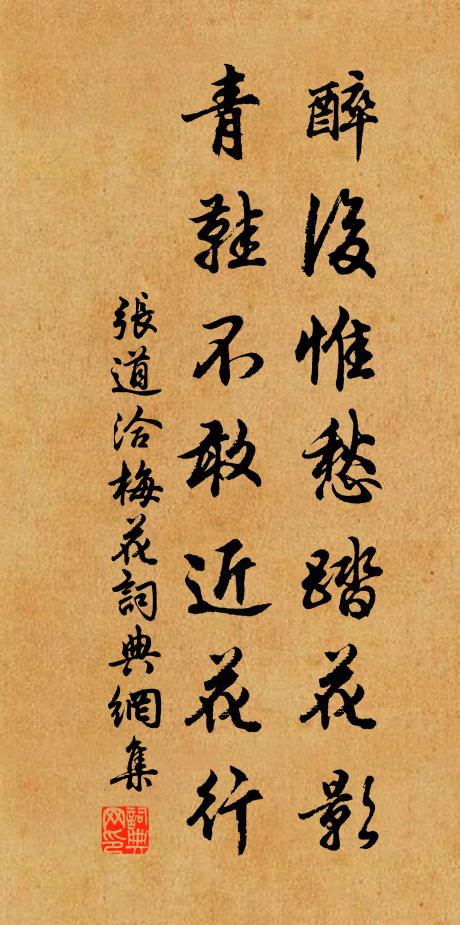 醉後惟愁踏花影
青鞋不敢近花行
張道洽梅花詞典網集
詞典网印